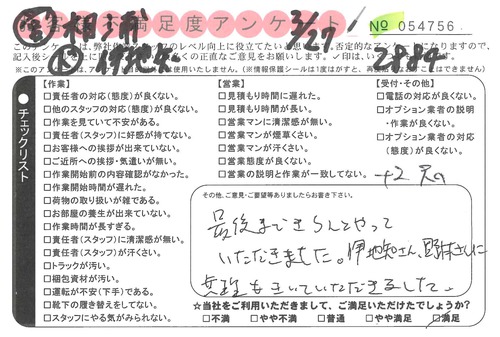 お客様不満足度アンケート
3/27
№ 054756
2884
【作業】
□責任者の対応(態度)が良くない。
□他のスタッフの対応(態度)が良くない。
□作業を見ていて不安がある。
□責任者(スタッフ)に好感が持てない。
□お客様への挨拶が出来ていない。
□ご近所への挨拶・気遣いが無い。
□作業開始前の内容確認がなかった。
□作業開始時間が遅れた。
□荷物の取り扱いが雑である。
□お部屋の養生が出来ていない。
□作業時間が長すぎる。
□責任者(スタッフ)に清潔感が無い。
□責任者(スタッフ)が汗くさい。
□トラックが汚い。
□梱包資材が汚い。
□運転が不安(下手)である。
□靴下の履き替えをしてない。
□スタッフにやる気がみられない。
【営業】
□見積もり時間に遅れた。
□見積もり時間が長い。
□営業マンに清潔感が無い。
□営業マンが煙草くさい。
□営業マンが汗くさい。
□営業態度が良くない。
□営業の説明と作業が一致してない。
【受付・その他】
□電話の対応が良くない。
□オプション業者の説明
・作業が良くない。
□オプション業者の対応
(態度)が良くない。
チェックリスト
その他、ご意見・ご要望等ありましたらお書き下さい。
最後まできちんとやって
いただきました。伊地知さん、野林さんに
☆当社をご利用いただきまして、ご満足いただけたでしょうか?
□不満 □やや不満 □普通 □やや満足 □満足